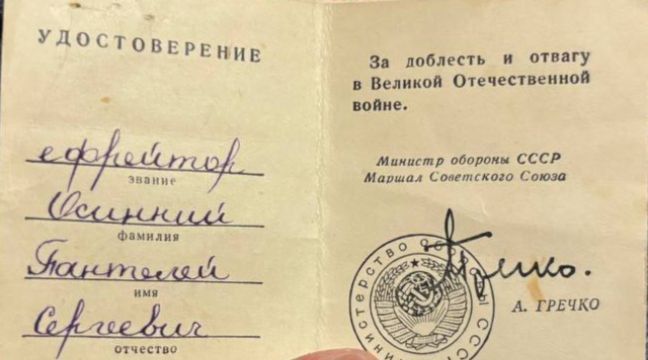 УДОСТОВЕРЕНИЕ
ефрейтор
звание
Осинний
фамилия
Пантелей
имя
Сергеевич
отчество
За доблесть и отвагу
в Великой Отечественной
войне.
Министр обороны СССР
Маршал Советского Союза
Гречко.
А. ГРЕЧКО
Министерство Обороны СССР